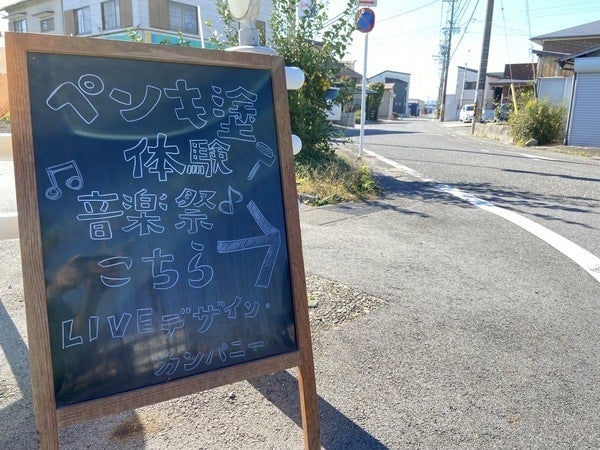 ペンキ塗
体験
音楽祭
こちら
LIVEデザイン・
カンパニー